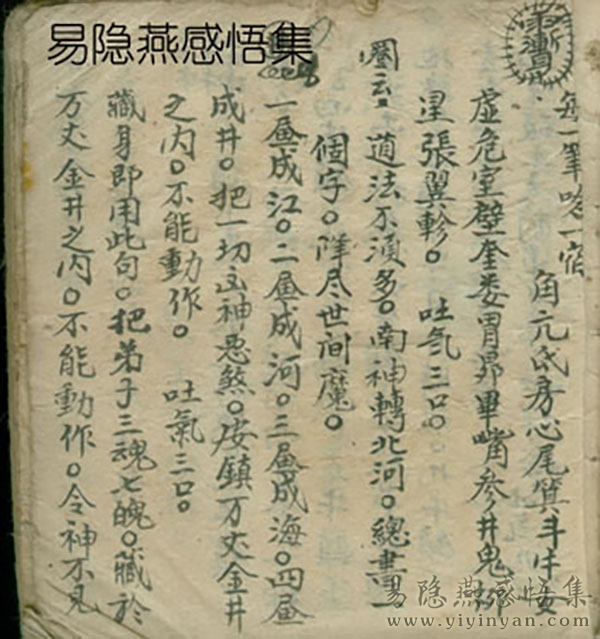 易隐燕感悟集
每一筆唸一宿
角亢氐房心尾箕斗牛女
虛危室壁奎娄胃昴畢嘴參井鬼柳
星張翼軫。 吐氣三口。
圈云 道法不須多。南神轉北河。總畫一
個字。降尽世间魔。
一畫成江。二畫成河。三畫成海。四畫
成井。把一切凶神恶煞。安鎮万丈金井
之内。不能動作。 吐氣三口。
藏身即用此句。把弟子三魂七魄。藏於
万丈金井之内。不能動作。令神不見
易隐燕感悟集
www.yiyinyan.com